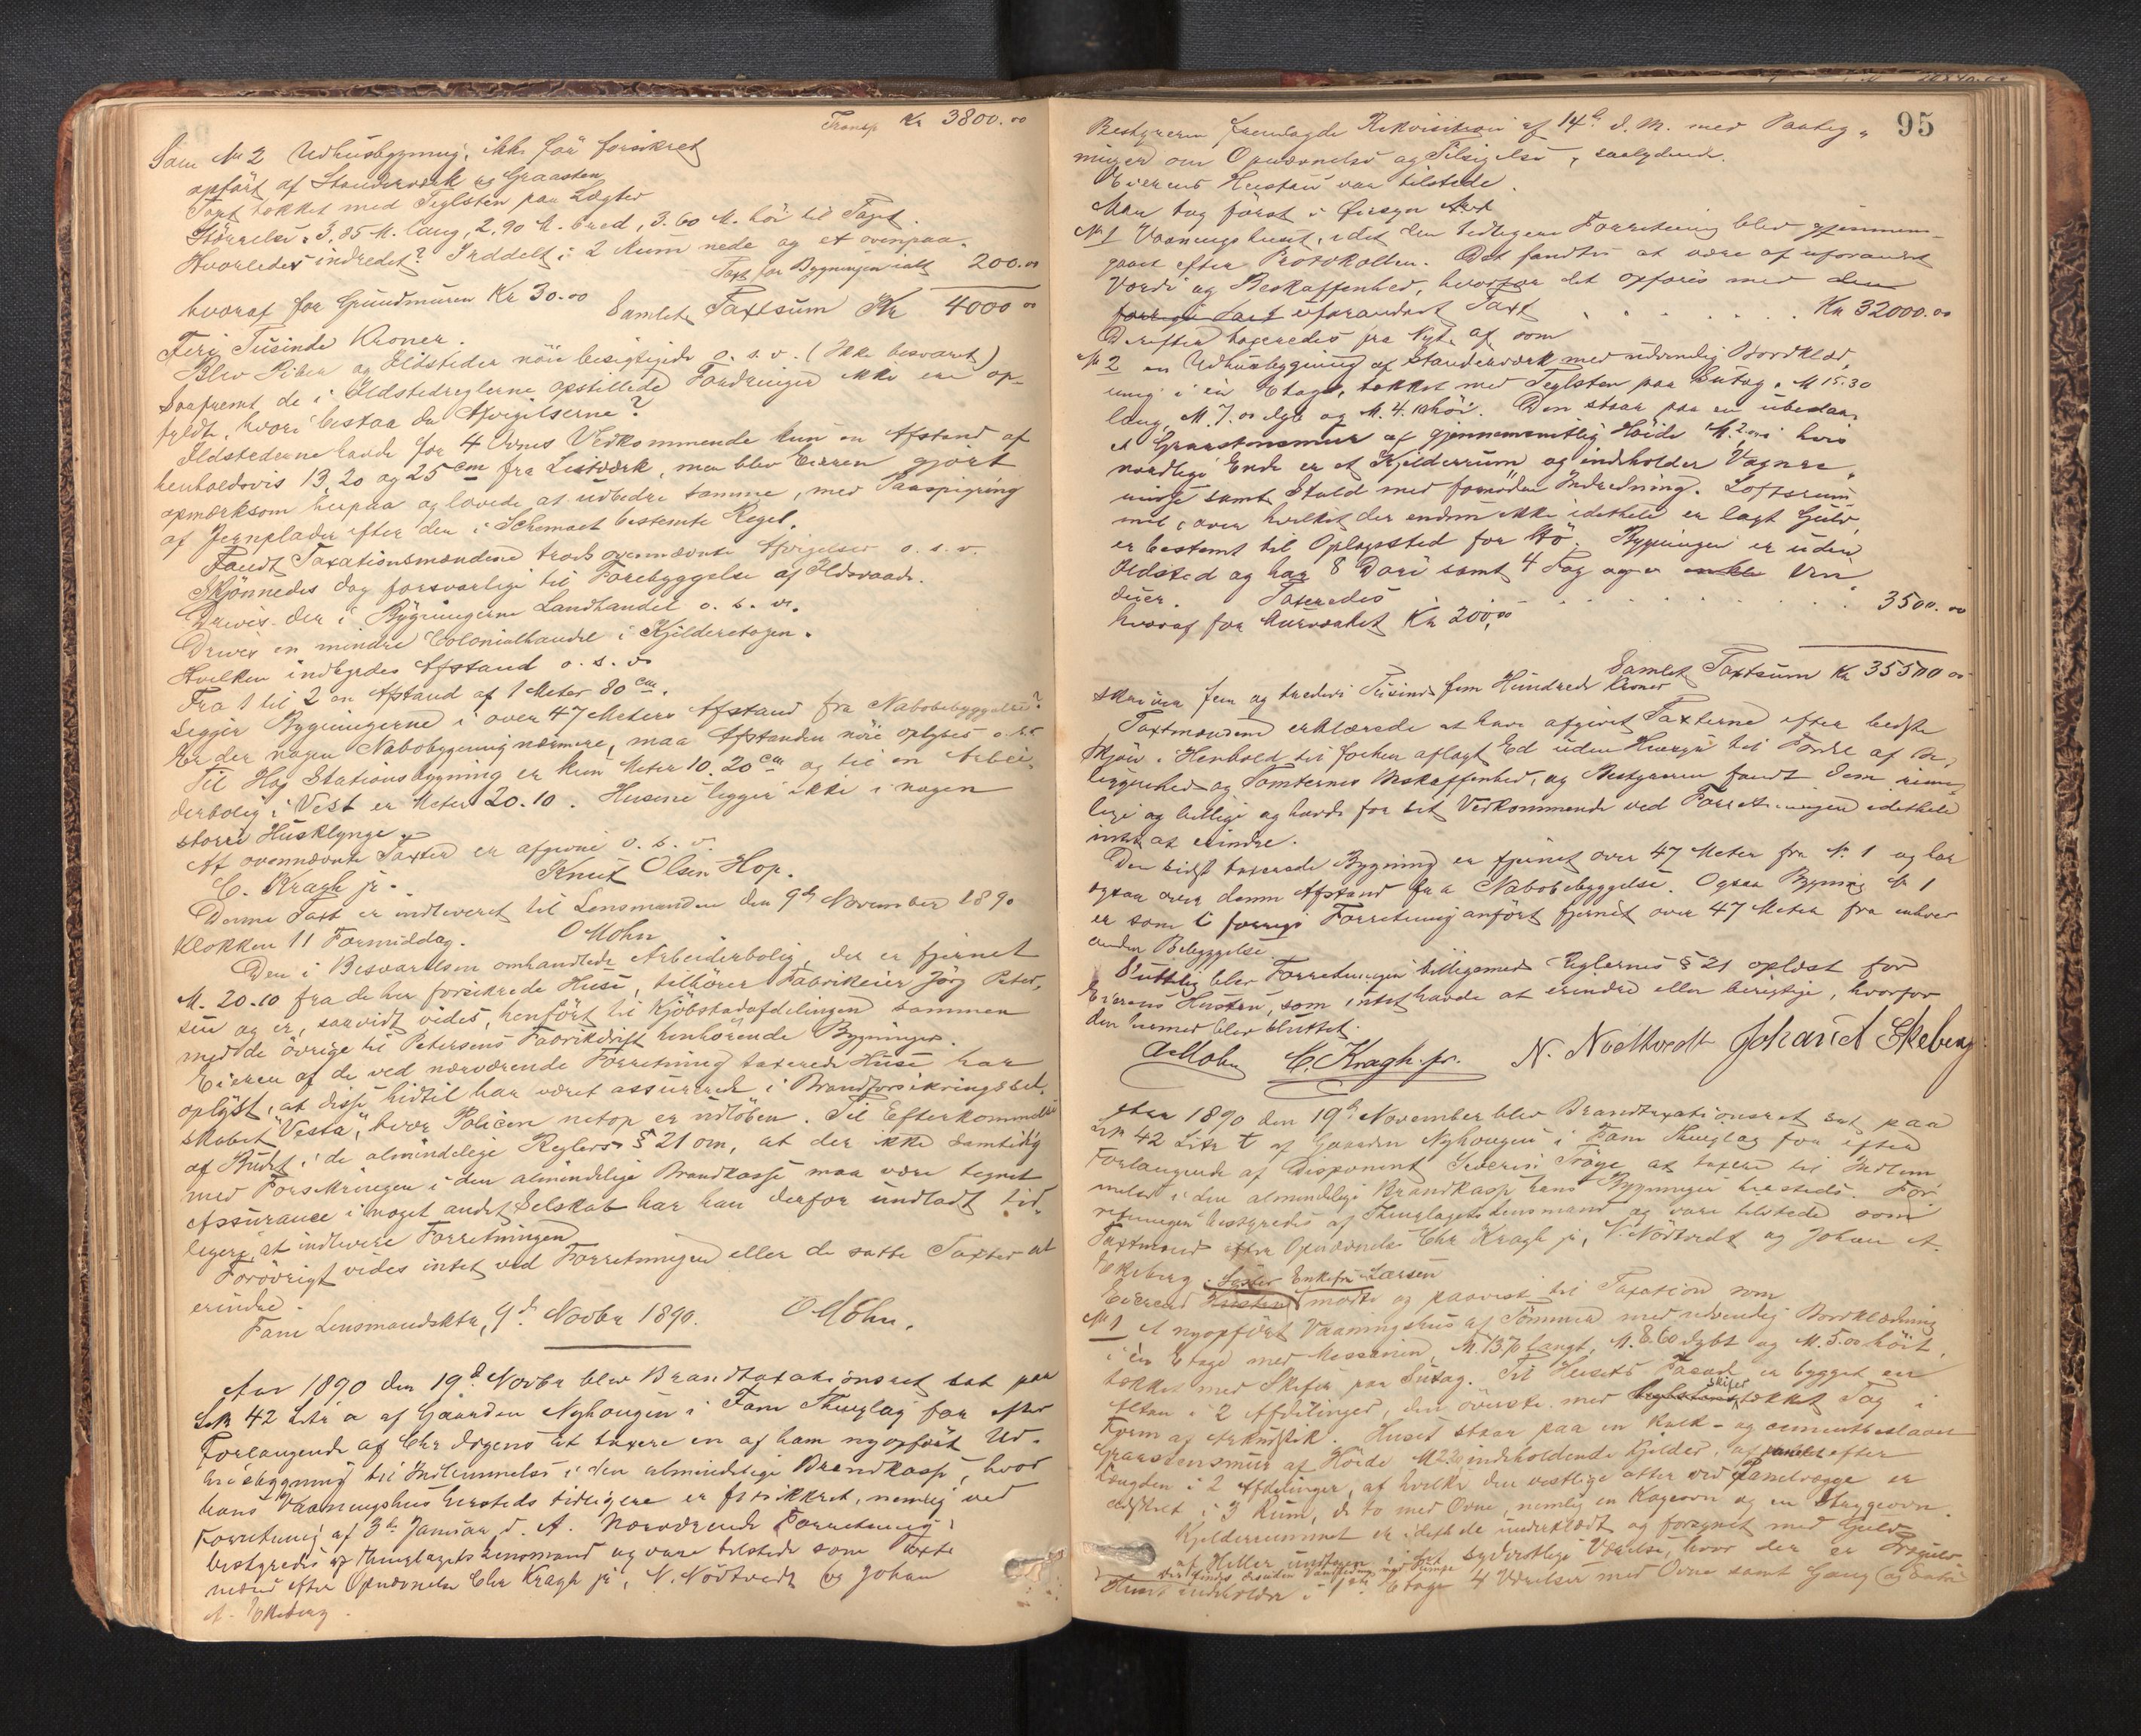 Transp Kr 3800.00
Som No 2 Udhusbygning, ikke før forsikret
opført af Standerværk og Graasten
Taget tækket med Teglsten paa Lægter
Størrelse: 3.85 M. lang, 2.90 M. bred, 3.60 M. høi til Taget.
Hvorledes indredet? Inddelt i 2 Rum nede og et ovenpaa.
Taxt for Bygningen ialt 200.00
hvoraf for Grundmuren Kr 30.00 Samlet Taxtsum Kr 4000 00
Fire Tusinde Kroner.
Blev Piber og Ildsteder nøie besigtigede o. s. v. (Ikke besvaret)
Saafremt de i Ildstedreglerne opstillede Fordringer ikke ere op-
fyldte, hvori bestaa da Afvigelserne?
Ildstederne havde for 4 Ovnes Vedkommende kun en Afstand af
henholdsvis 13, 20 og 25 cm fra Listværk, men blev Eieren gjort
opmærksom herpaa og lovede at udbedre samme, med Paaspigring
af Jernplader efter den i Schemaet bestemte Regel.
Fandt Taxationsmændene trods ovennævnte Afvigelser o. s. v.
Skjønnedes dog forsvarlige til Forebyggelse af Ildsvaade.
Drives der i Bygningerne Landhandel o. s. v.
Drives en mindre Colonialhandel i Kjelderetagen.
Hvilken indbyrdes Afstand o. s. v.
Fra 1 til 2 en Afstand af 1 Meter 80 cm.
Ligger Bygningerne i over 47 Meters Afstand fra Nabobebyggelse?
Er der nogen Nabobygning nærmere, maa Afstanden nøie oplyses o. s. v.
Til Hop Stationsbygning er kun Meter 10.20 cm og til en Arbei-
derbolig i Vest er Meter 20.10. Husene ligger ikke i nogen
større Husklynge.
At ovennævnte Taxter er afgivne o. s. v.
C. Kragh jr. Knut Olsen Hop.
Denne Taxt er indleveret til Lensmanden den 9de November 1890
Klokken 11 Formiddag. O Mohn
Den i Besvarelsen omhandlede Arbeiderbolig, der er fjernet
M. 20.10 fra de her forsikrede Huse, tilhører Fabrikeier Jörg Peter-
sen og er, saavidt vides, henført til Kjøbstadafdelingen sammen
med de øvrige til Petersens Fabrikdrift henhørende Bygninger.
Eieren af de ved nærværende Forretning taxerede Huse har
oplyst, at disse hidtil har været assurerede i Brandforsikringssel-
skabet "Vesta", hvor Policen netop er udløben. Til Efterkommelse
af Budet i de almindelige Reglers § 21 om, at der ikke samtidig
med Forsikringen i den almindelige Brandkasse maa være tegnet
Assurance i noget andet Selskab har han derfor undladt tid-
ligere at indlevere Forretningen
Forøvrigt vides intet ved Forretningen eller de satte Taxter at
erindre.
Fane Lensmandsktr, 9de Novbr 1890. O Mohn.
Aar 1890 den 19de Novbr blev Brandtaxationsret sat paa
Lno 42 Litr a af Gaarden Nyhougen i Fane Thinglag for efter
Forlangende af Chr Irgens at taxere en af ham nyopført Ud-
husbygning til Indlemmelse i den almindelige Brandkasse, hvor
hans Vaaningshus hersteds tidligere er forsikret, nemlig ved
Forretning af 3de Januar d. A. Nærværende Forretning
bestyredes af Thinglagets Lensmand og vare tilstede som Taxt-
mænd efter Opnævnelse Chr Kragh jr, N. Nödtvedt og Johan
A. Ekeberg.
95
Bestyreren fremlagde Rekvisition af 14de d. M. med Paateg-
ninger om Opnævnelse og Tilsigelse, saalydende.
Eierens Hustru var tilstede.
Man tog først i Øiesyn
No 1 Vaaningshuset, idet den tidligere Forretning blev gjennem-
gaaet efter Protokollen. Det fandtes at være af uforandret
Værdi og Beskaffenhed, hvorfor det opføres med den
forrige Taxt uforandret Taxt . . . . . . Kr 32000.00
Derefter taxeredes fra Nyt af som
No 2 en Udhusbygning af Standerværk med udvendig Bordklæd-
ning i én Etage, tækket med Teglsten paa Sutag. M 15.30
lang, M. 7.00 dyb og M. 4.10 høi. Den staar paa en
Graastensmur af gjennemsnitlig Høide M. 2.00 i hvis
nordlige Ende er et Kjelderrum og indeholder Vogn-
samt Stald med fornøden Indredning. Loftsrum
met, over hvilket der endnu ikke idethele er lagt Gulv,
er bestemt til Oplagssted for Hø. Bygningen er uden
Ildsted og har 8 Døre samt 4 Fag Vin
duer. Taxeredes . . . . . . . . 3500.00
hvoraf for Murværket Kr 200,00
Samlet Taxtsum Kr 35500 00
skriver fem og tredive Tusinde fem Hundrede Kroner
Taxtmændene erklærede at have afgivet Taxterne efter bedste
Skjøn i Henhold til forhen aflagt Ed uden Hensyn til Fordel af Be-
liggenhed og Tomternes Beskaffenhed, og Bestyreren fandt dem rime-
lige og billige og havde for sit Vedkommende ved Forretningen idethele
intet at erindre.
Den sidst taxerede Bygning er fjernet over 47 Meter fra No 1 og har
ogsaa over denne Afstand fra Nabobebyggelse. Ogsaa Bygning No 1
er som i forrige Forretning anført fjernet over 47 Meter fra enhver
anden Bebyggelse.
Sluttelig blev Forretningen tilligemed Reglernes § 21 oplæst for
Eierens Hustru, som intet havde at erindre eller berigtige, hvorfor
den hermed blev sluttet.
O Mohn C. Kragh jr. N. Nødtvedt Johan A Ekeberg
Aar 1890 den 19de November blev Brandtaxationsret sat paa
Lno 42 Litr t af Gaarden Nyhougen i Fane Thinglag for efter
Forlangende af Disponent Severin Tröye at taxere til Indlem-
melse i den almindelige Brandkasse hans Bygninger hersteds. For-
retningen bestyredes af Thinglagets Lensmand og vare tilstede som
Taxtmænd efter Opnævnelse Chr Kragh jr, N. Nödtvedt og Johan A.
Ekeberg. Søster Enkefru Larsen
Eierens Hustru mødte og paaviste til Taxation som
No 1 et nyopført Vaaningshus af Tømmer med udvendig Bordklædning
i én Etage med Messanin, M. 13.70 langt, M. 8.60 dybt og M. 5.00 høit,
tækket med Skifer paa Sutag. Til Husets Facade er bygget en
Altan i 2 Afdelinger, den øverste med Skifer tækket Tag i
Form af Huset staar paa en Kalk- og cementbeslaaet
Graastensmur af Høide M 2.20 indeholdende Kjelder, efter
Længden i 2 Afdelinger, af hvilke den vestlige atter ved Panelvægge er
i 3 Rum, de to med Ovne, nemlig en Kogeovn og en Strygeovn.
Kjelderrummet er idethele underklædt og forsynet med Gulv
af Heller undtagen i det sydvestlige Værelse, hvor der er Trægulv
der findes desuden Vandledning med Pumpe
Huset indeholder i 1ste Etage 4 Værelser med Ovne samt Gang